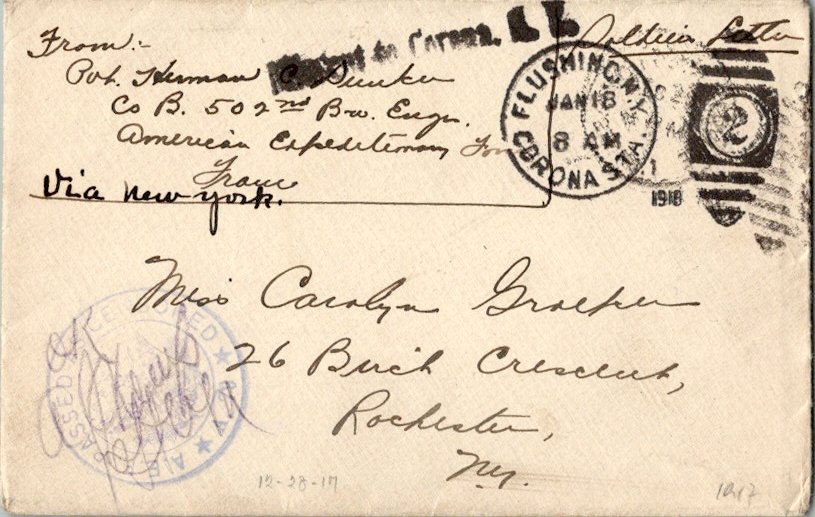 From:-
Pvt. Herman C. Dunker
Co B. 502nd Bn. Engr.
American Expeditionary
France
Via New York.
Missent to Corona, N. Y.
Soldiers Letter
FLUSHING N.Y.
JAN 18
8 AM
CORONA STA.
1918
2
Miss Carolyn
26 Birch Crescent,
Rochester,
N.Y.
PASSED CENSORED
A.E.F.
12-28-17
1917